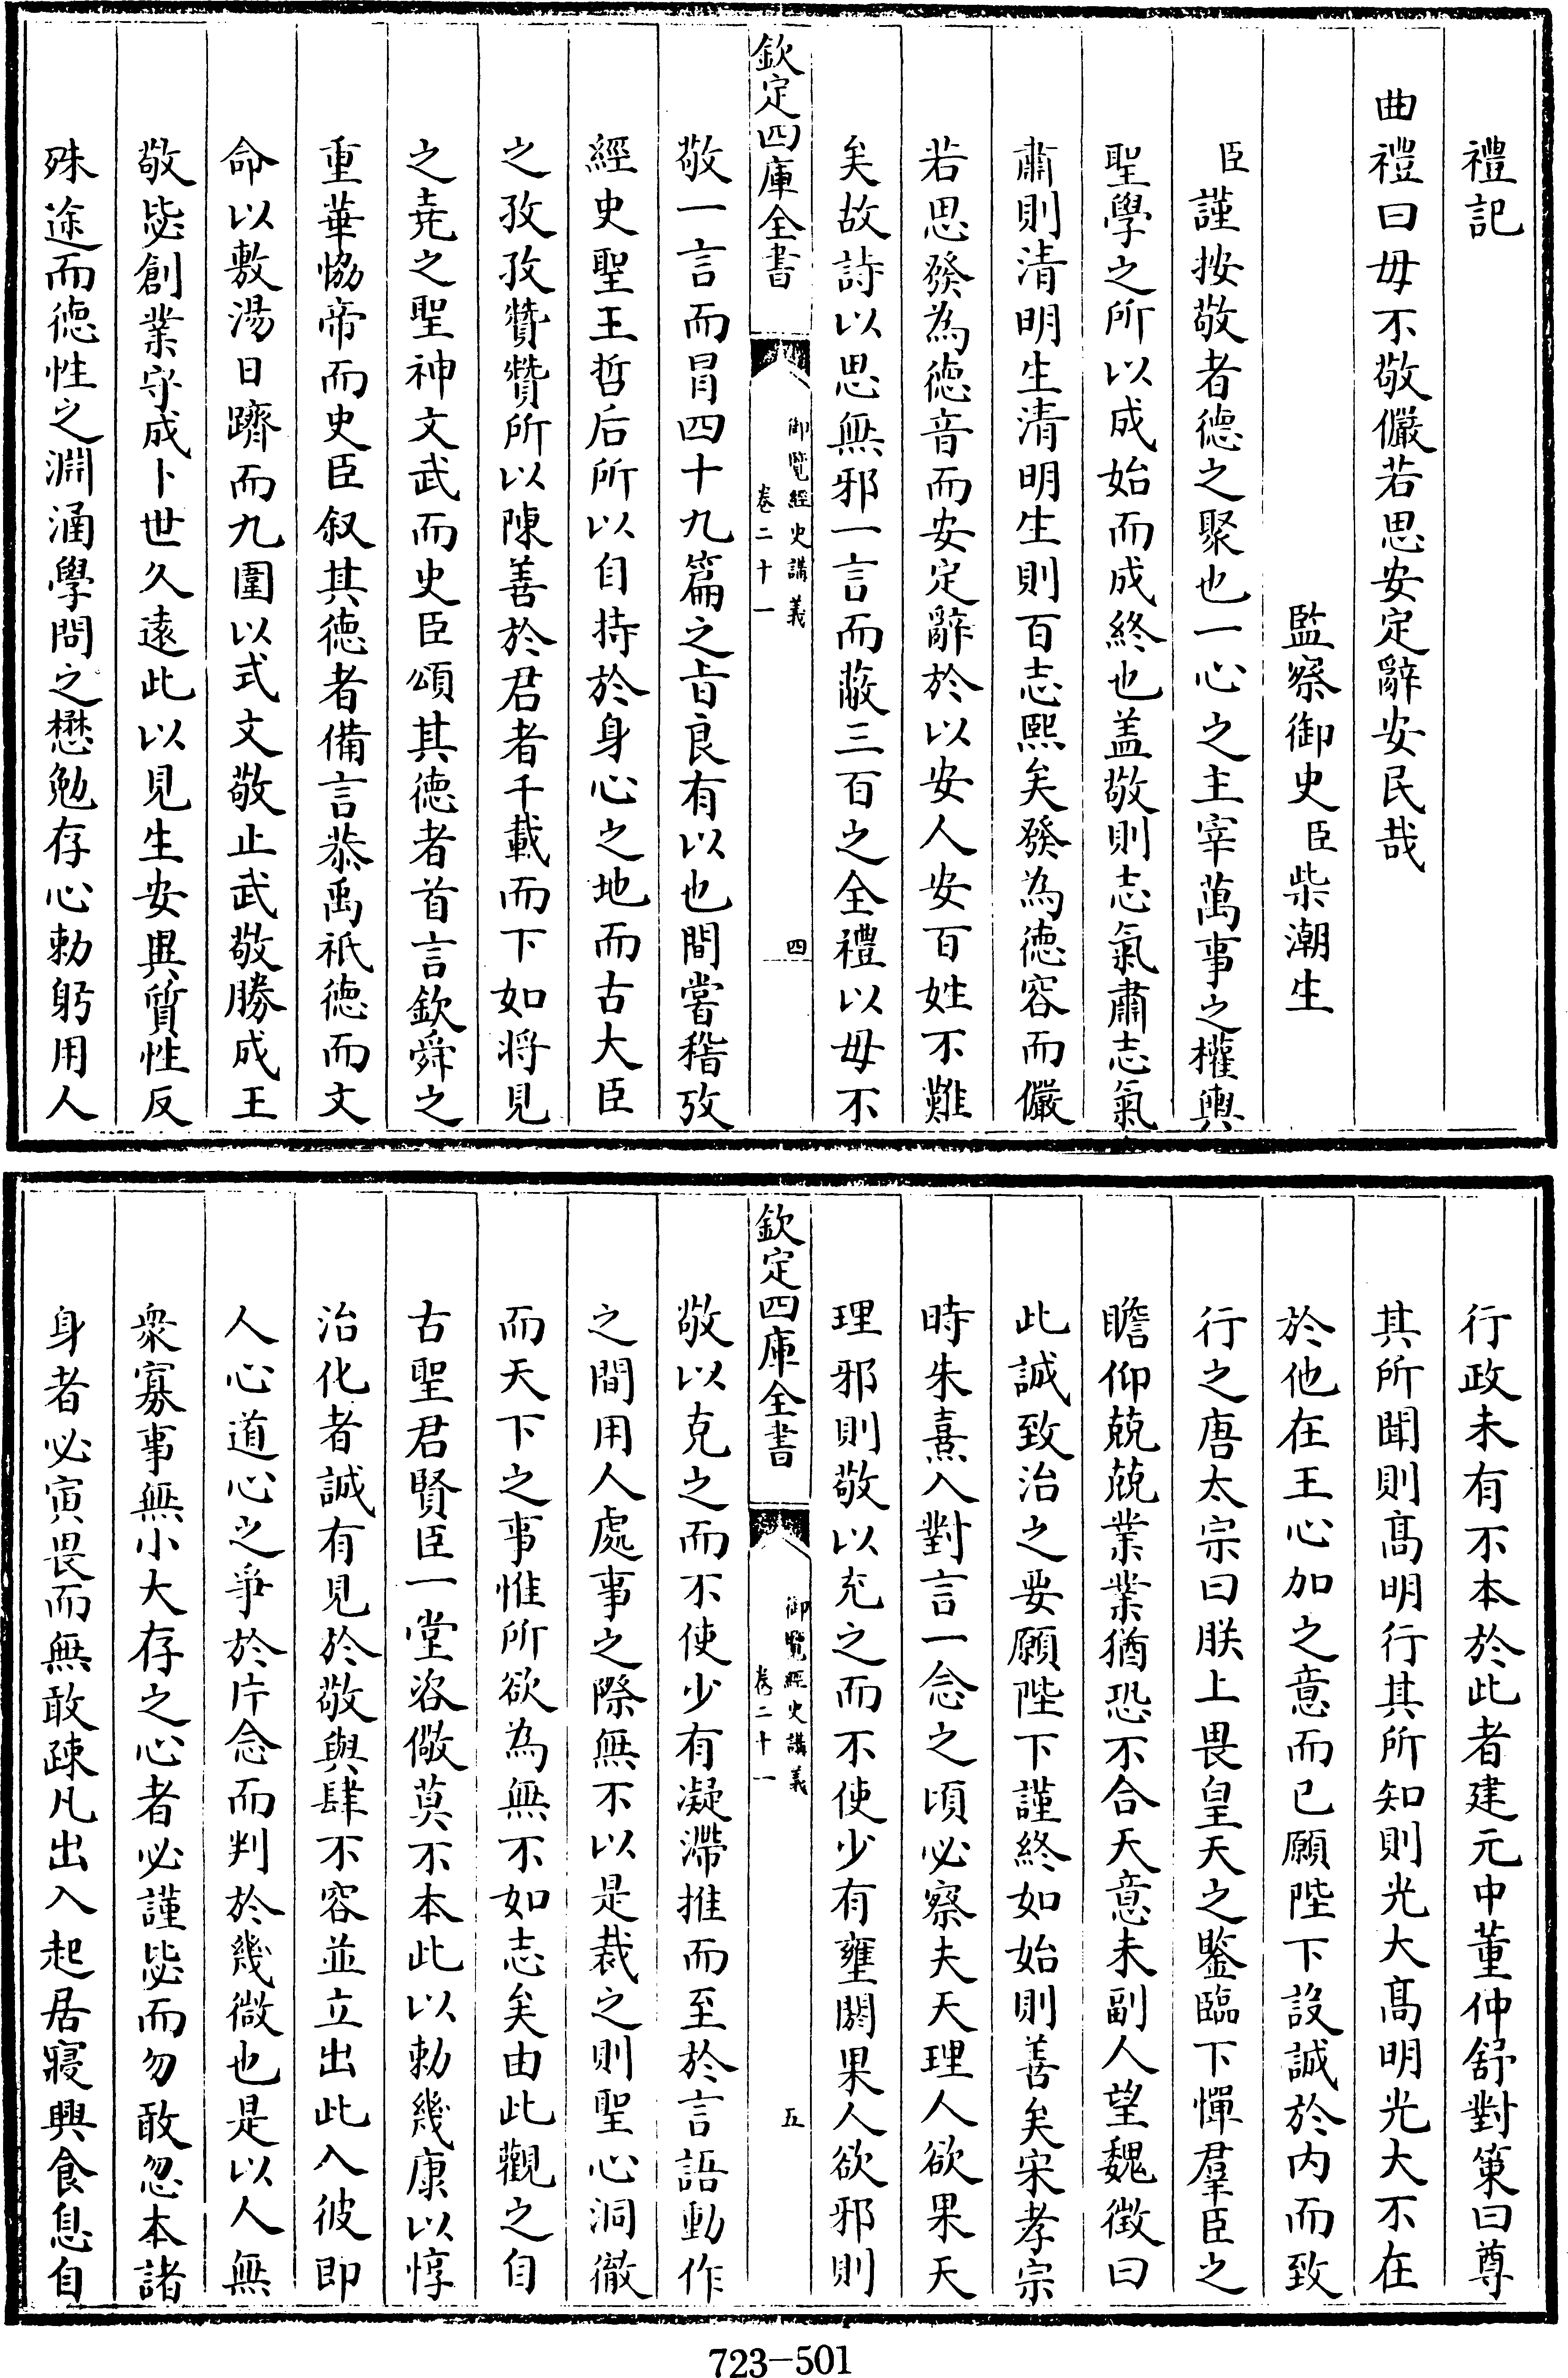 禮記
曲禮曰毋不敬儼若思安定辭安民哉
監察御史臣柴潮生
臣謹按敬者德之聚也一心之主宰萬事之權輿
聖學之所以成始而成終也盖敬則志氣肅志氣
肅則清明生清明生則百志熙矣發為德容而儼
若思發為德音而安定辭於以安人安百姓不難
矣故詩以思無邪一言而蔽三百之全禮以毋不
欽定四庫全書
御覽經史講義
卷二十一
四
敬一言而冒四十九篇之旨良有以也間嘗稽攷
經史聖王哲后所以自持於身心之地而古大臣
之孜孜贊贊所以陳善於君者千載而下如将見
之堯之聖神文武而史臣頌其德者首言欽舜之
重華恊帝而史臣叙其德者備言恭禹祇德而文
命以敷湯日躋而九圍以式文敬止武敬勝成王
敬毖創業守成卜世久遠此以見生安與質性反
殊途而德性之淵涵學問之懋勉存心勅躬用人
行政未有不本於此者建元中董仲舒對策曰尊
其所聞則髙明行其所知則光大髙明光大不在
於他在王心加之意而已願陛下設誠於内而致
行之唐太宗曰朕上畏皇天之鑒臨下憚羣臣之
瞻仰兢兢業業猶恐不合天意未副人望魏徴曰
此誠致治之要願陛下謹終如始則善矣宋孝宗
時朱熹入對言一念之頃必察夫天理人欲果天
理邪則敬以充之而不使少有壅閼果人欲邪則
欽定四庫全書
御覽經史講義
卷二十一
五
敬以克之而不使少有凝滯推而至於言語動作
之間用人處事之際無不以是裁之則聖心洞徹
而天下之事惟所欲為無不如志矣由此觀之自
古聖君賢臣一堂咨儆莫不本此以勅幾康以惇
治化者誠有見於敬與肆不容並立出此入彼即
人心道心之爭於片念而判於幾微也是以人無
衆寡事無小大存之心者必謹毖而勿敢忽本諸
身者必寅畏而無敢疎凡出入起居寢興食息自
723-501